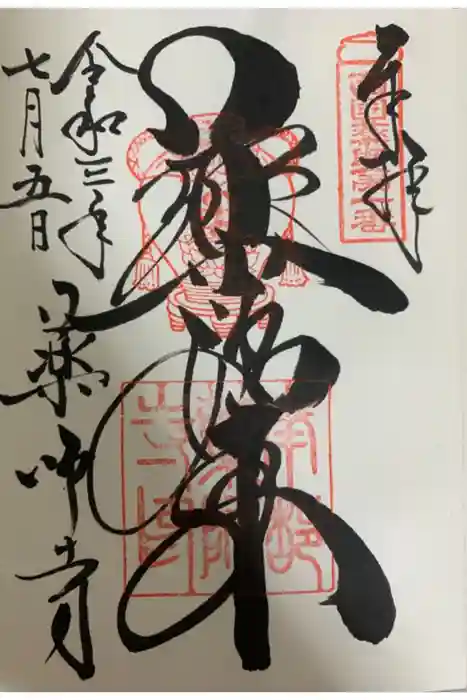 奉拝
薬師如来
令和三年
七月五日
薬師寺